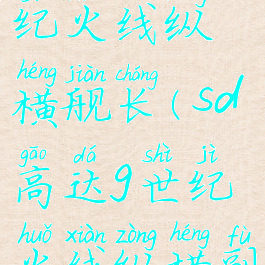 纪火线纵
héng jiàn cháng
横舰长(sd
gāo dá shì jì
高达g世纪
huǒ xiàn zòng héng fù
火线纵横副